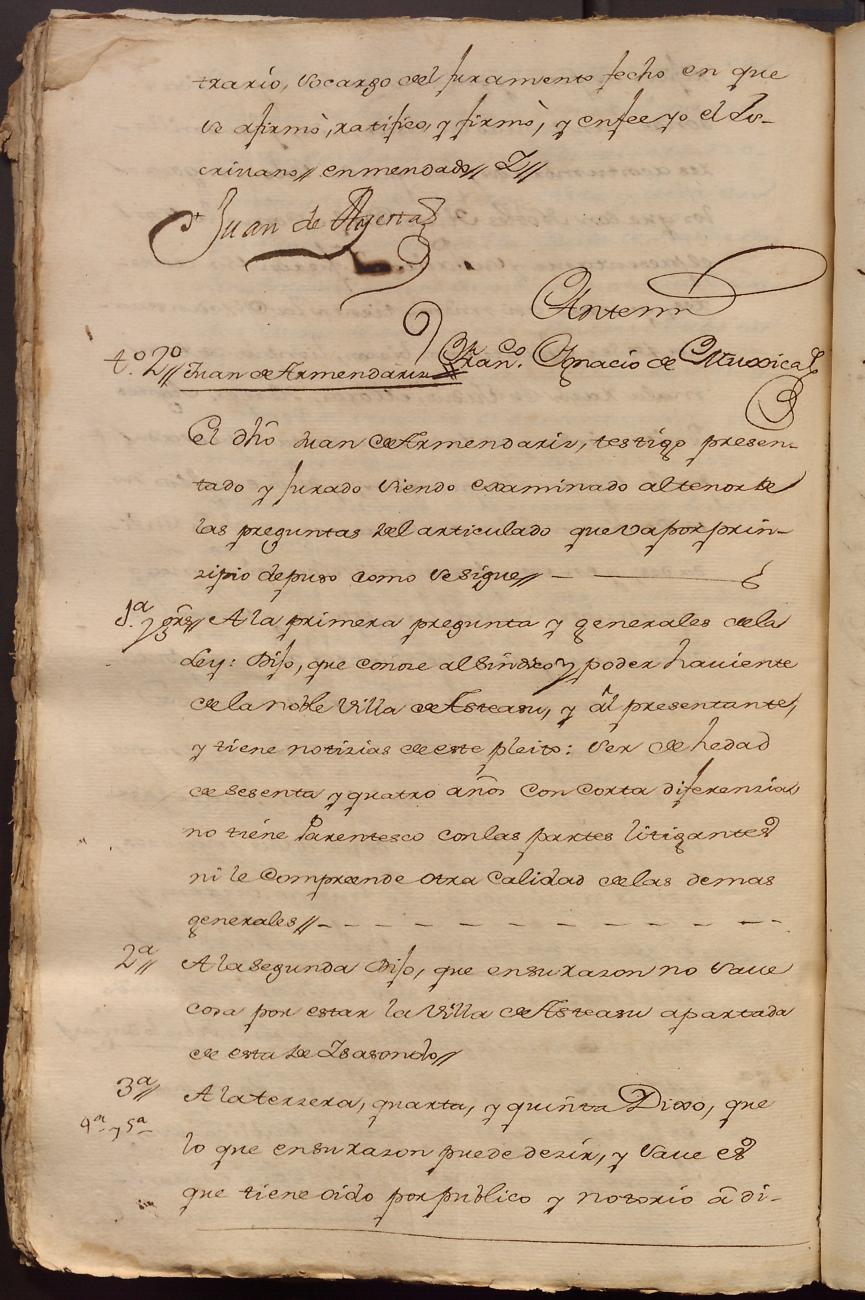 trario, so cargo del juramento fecho en que
se afirmò, ratifico, y firmò, y enfee yo el Es-
crivano // enmendado // Z //
Juan de Ayerta
Antemi
Franco. Ignacio de
to. 2o // Juan de Armendariz
El dho Juan de Armendariz, testigo presen-
tado y jurado siendo examinado al tenor de
las preguntas del articulado que va por prin-
zipio depuso como se sigue //
1.a y grs // A la primera pregunta y generales de la
Ley: Dijo, que conoze al Sindico y poder haviente
de la noble Villa de Asteasu, y al presentante,
y tiene notizias de este pleito: ser de hedad
de sesenta y quatro años con corta diferenzia,
no tiene Parentesco con las partes litigantes
ni le Compreende otra Calidad de las demas
generales //
2a // A la segunda Dijo, que en su razon no save
cosa por estar la Villa de Asteasu apartada
de esta de Isasondo //
3a // A la terzera, quarta, y quinta Dixo, que
4a y 5a
lo que en su razon puede dezir, y save es
que tiene oido por publico y notorio à di-